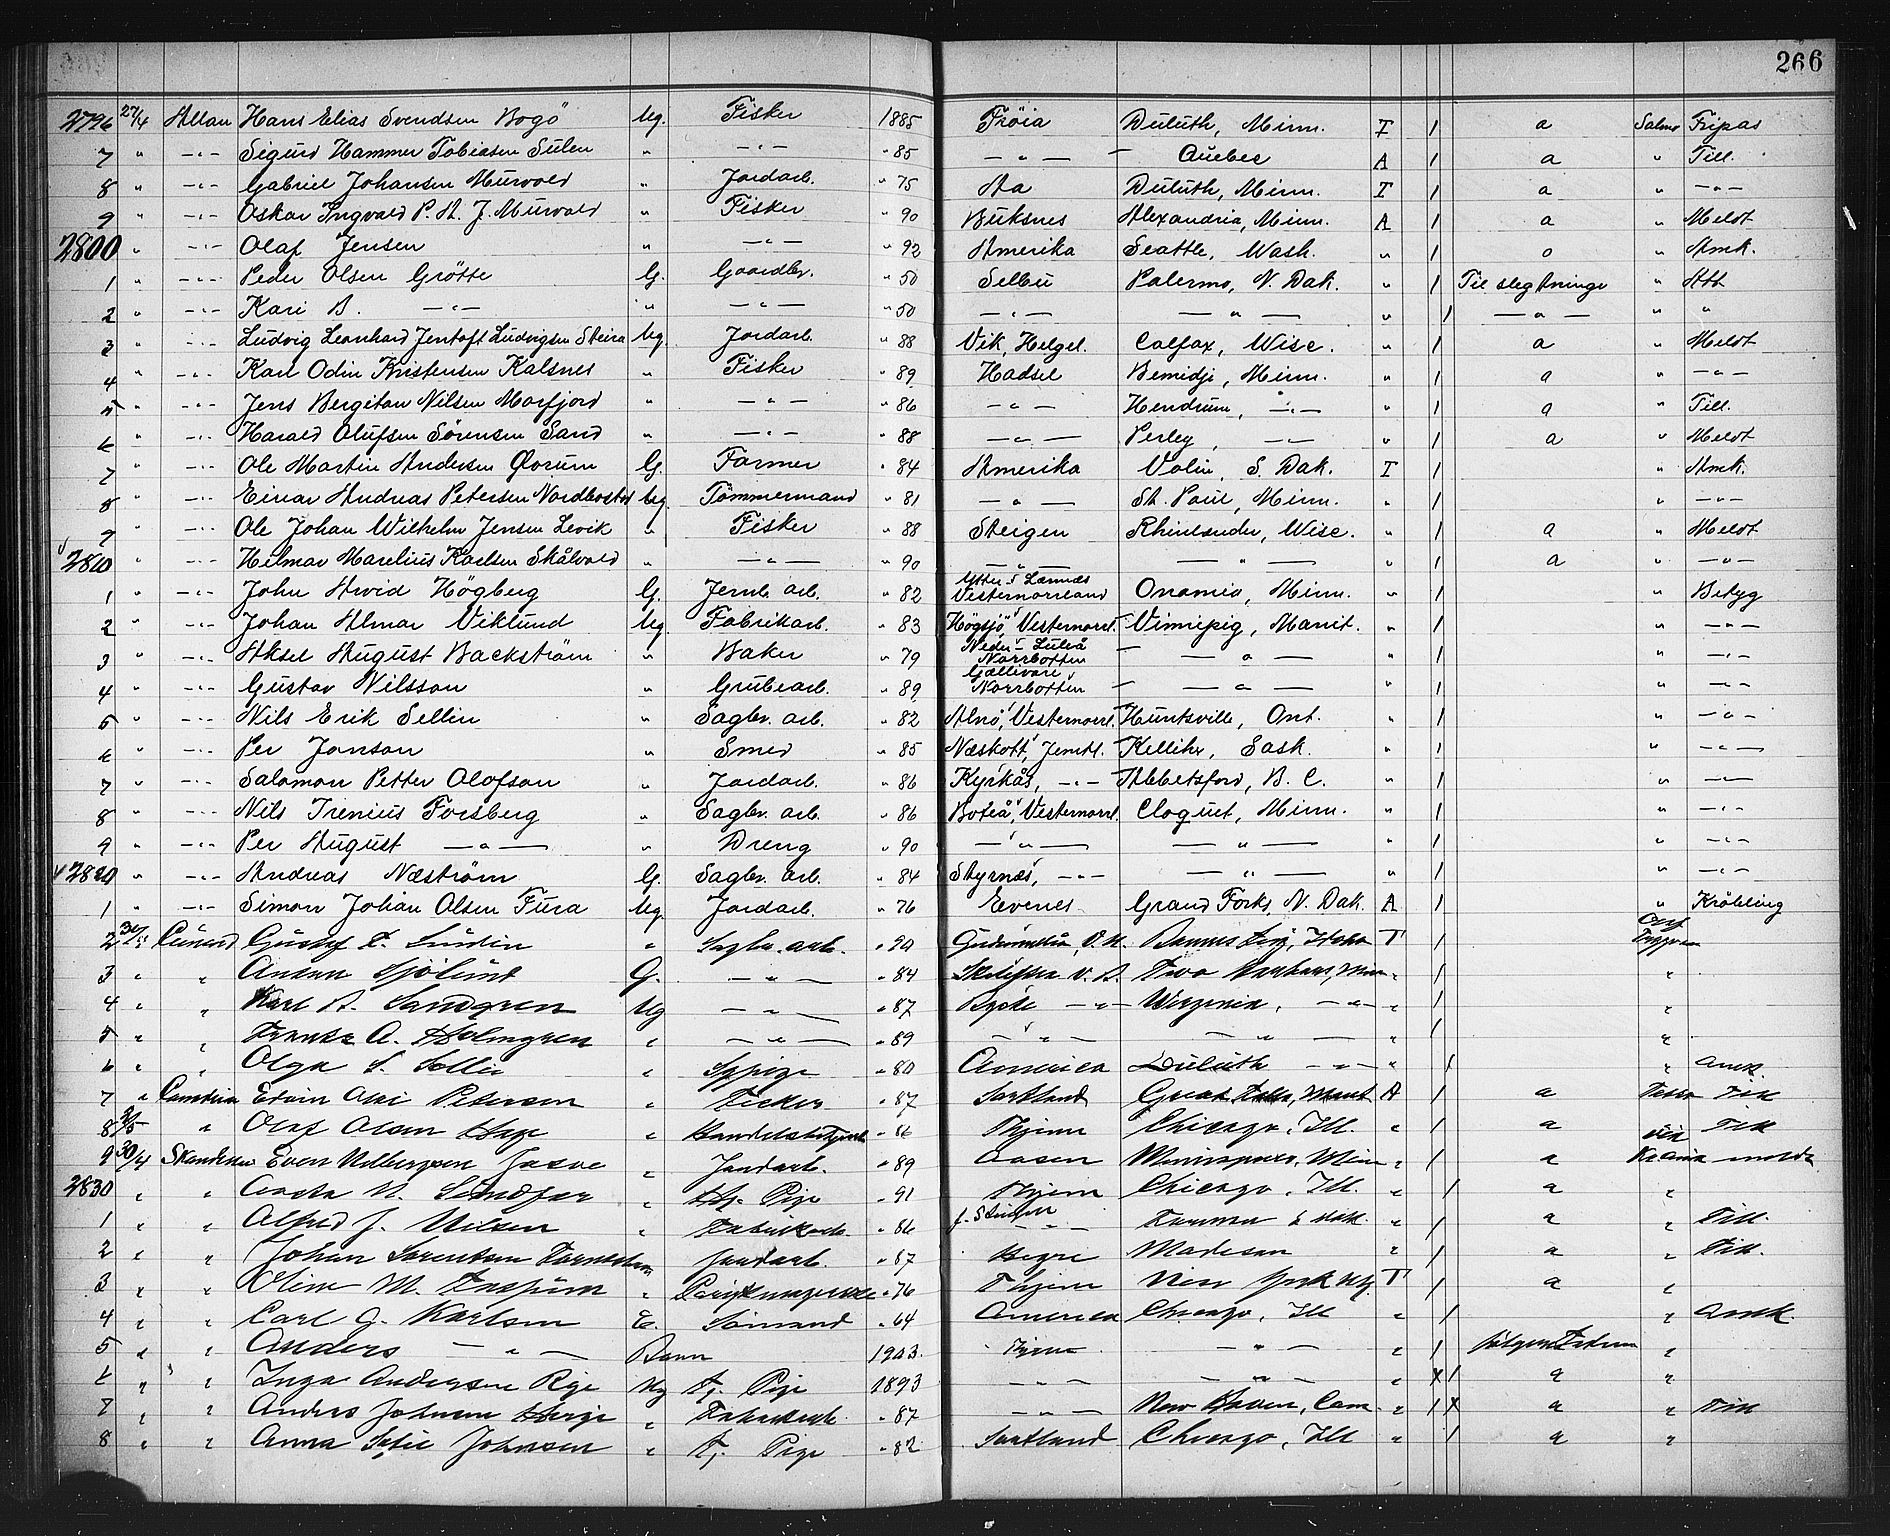 266
2796 27/4 Allan Hans Elias Svendsen Bogö Ug. Fisker 1885 Fröia Duluth, Minn. T / a Salmo Fripas
7 " -"- Sigurd Hammer Tobiasen Sulen " -"- " 85 -"- Quebec A / a " Till.
8 " -"- Gabriel Johansen Murvold " Jordarb. " 75 Aa Duluth, Minn. T / a " -"-
9 " -"- Oskar Ingvald P. A. J. Murvold " Fisker " 90 Buksnes Alexandria, Minn. A / a " Meldt
2800 " -"- Olaf Jensen " -"- " 92 Amerika Seattle, Wash. " / o " Amk.
1 " -"- Peder Olsen Grötte G. Gaardbr. " 50 Selbu Palermo, N. Dak. " / Til slegtninge " Att
2 " -"- Kari B. -"- " -"- " 50 -"- -"- " / -"- " "
3 " -"- Ludvig Leonhard Jentoft Ludvigsen Steira Ug. Jordarb. " 88 Vik, Helgel. Colfax, Wisc. " / a " Meldt
4 " -"- Karl Odin Kristensen Kalsnes " Fisker " 89 Hadsel Bemidji, Minn. " / a " -"-
5 " -"- Jens Bergitan Nilsen Morfjord " -"- " 86 -"- Hendrum, -"- " / a " Till.
6 " -"- Harald Olufsen Sörensen Sand " -"- " 88 -"- Perley, -"- " / a " Meldt
7 " -"- Ole Martin Andersen Glorum G. Farmer " 84 Amerika Volin, S. Dak. T / " Amk.
8 " -"- Einar Andreas Petersen Nordbostad Ug. Tömmermand " 81 -"- St. Paul, Minn. " / " -"-
9 " -"- Ole Johan Wilhelm Jensen Levik " Fisker " 88 Steigen Rhinlander, Wisc. " / a " Meldt
2810 " -"- Hilmar Marelius Karlsen Skålvold " -"- " 90 -"- -"- " / a " -"-
1 " -"- John Arvid Högberg G. Jernb. arb. " 82 Ytter Lännäs Vesternorrland Onamia, Minn. " / " Betyg
2 " -"- Johan Almar Viklund Ug. Fabrikarb. " 83 Högsjö, Vesternorrl. Vinnipig, Manit. " / " -"-
3 " -"- Aksel August Backström " Baker " 79 Neder Luleå Norrbotten -"- " / " -"-
4 " -"- Gustav Nilsson " Grubearb. " 89 Gällivare Norrbotten -"- " / " -"-
5 " -"- Nils Erik Sellin " Sagbr. arb. " 82 Alnö, Vesternorrl. Huntsville, Ont. " / " -"-
6 " -"- Per Jonson " Smed " 85 Næskott, Jemtl. Kellihr, Sask. " / " -"-
7 " -"- Salamon Petter Olofson " Jordarb. " 86 Kyrkås, -"- Abbetsford, B. C. " / " -"-
8 " -"- Nils Irenius Forsberg " Sagbr. arb. " 86 Boteå, Vesternorrl. Cloquet, Minn. " / " -"-
9 " -"- Per August -"- " Dreng " 90 -"- -"- " / " -"-
2820 " -"- Andreas Næström G. Sagbr. arb. " 84 Styrnäs, -"- -"- " / " -"-
1 " -"- Simon Johan Olsen Fura Ug. Jordarb. " 76 Evenes Grand Forks, N. Dak. A / " Kröbling
2 Cunard Gustaf Lundin " Sagbr. arb. " 90 Bonners Ferry, Idaho T /
3 " " Anton Sjölund G. -"- " 84 Skelleftea V. B. Two Harbors, Minn " /
4 " " Karl A. Sandgren Ug -"- " 87 Bygde -"- Virginia, -"- " / "
5 " " Frans A. Holmgren " -"- " 89 -"- -"- " / "
6 " " Olga S. Sollie " Sypige " 80 America Duluth -"- " / " Amk.
7 " Edvin Petersen " Fisker " 87 Sortland Great Falls, Mont A / a Till
8 2/5 " Olaf Olsen " " 86 Thjem Chicago, Ill. " / a Till
9 30/4 Even " Jordarb. " 89 Aasen Minneapolis, Minn " / a meldt
2830 " " " Tj. Pige " 91 Thjem Chicago, Ill. " / a "
1 " " Alfred J. Nilsen " Fabrikarb. " 86 -"- " / a " Till.
2 " " Johan Sorentsen " Jordarb. " 87 Hegre Madison " / a " Till.
3 " " Oline M. " " 76 Thjem New York Ny T / a "
4 " " Carl G. Karlsen E. Sömand " 64 America Chicago, Ill " / " Amk.
5 " " Anders -"- Barn 1903. Thjem -"- " / "
6 " " Inga Andersen Rye Ug Tj. Pige 1893 -"- -"- " X / a "
7 " " Anders Johnsen " Fabrikarb. " 87 -"- New Haven, Conn. " / X a " Till
8 " " Anna Sofie Johnsen " Tj. Pige " 82 Sortland Chicago, Ill " / a "